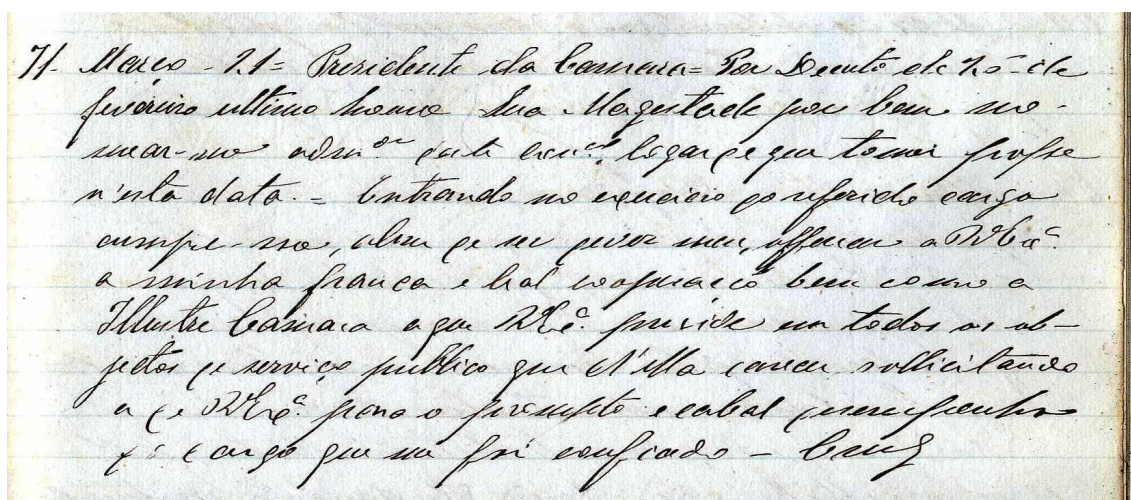 71. Março - 21 = Presidente da Camara = Por Decreto de 20 de
fevereiro ultimo houve Sua Magestade por bem no-
mear-me adm.or deste conc.o logar de que tomei posse
n'esta data. = Entrando no exercicio do referido cargo
cumpre-me, alem de ser dever meu, offerecer a V. Ex.a
a minha franca e leal cooperação bem como a
Illustre Camara a que V. Ex.a preside em todos os ob-
jectos de serviço publico que d'ella careça sollicitando
a de V. Ex.a para o prompto e cabal desempenho
do cargo que me foi confiado -